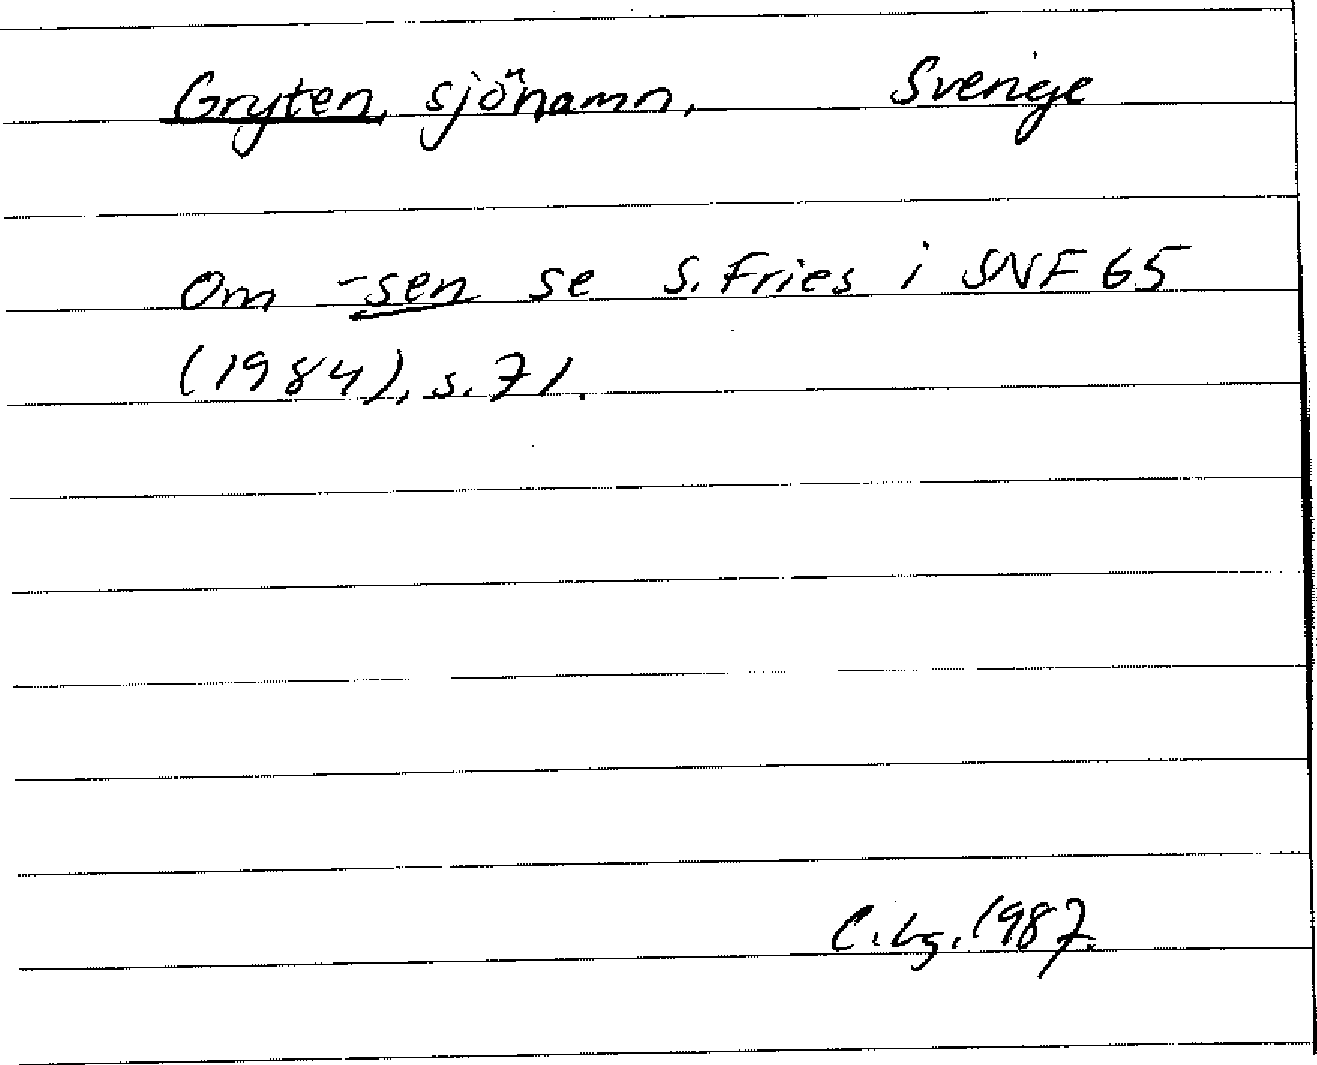 Gryten, sjönamn, Sverige
Om -sen se S. Fries i SNF 65
(1984), s. 71.
C. Lg. 1987.